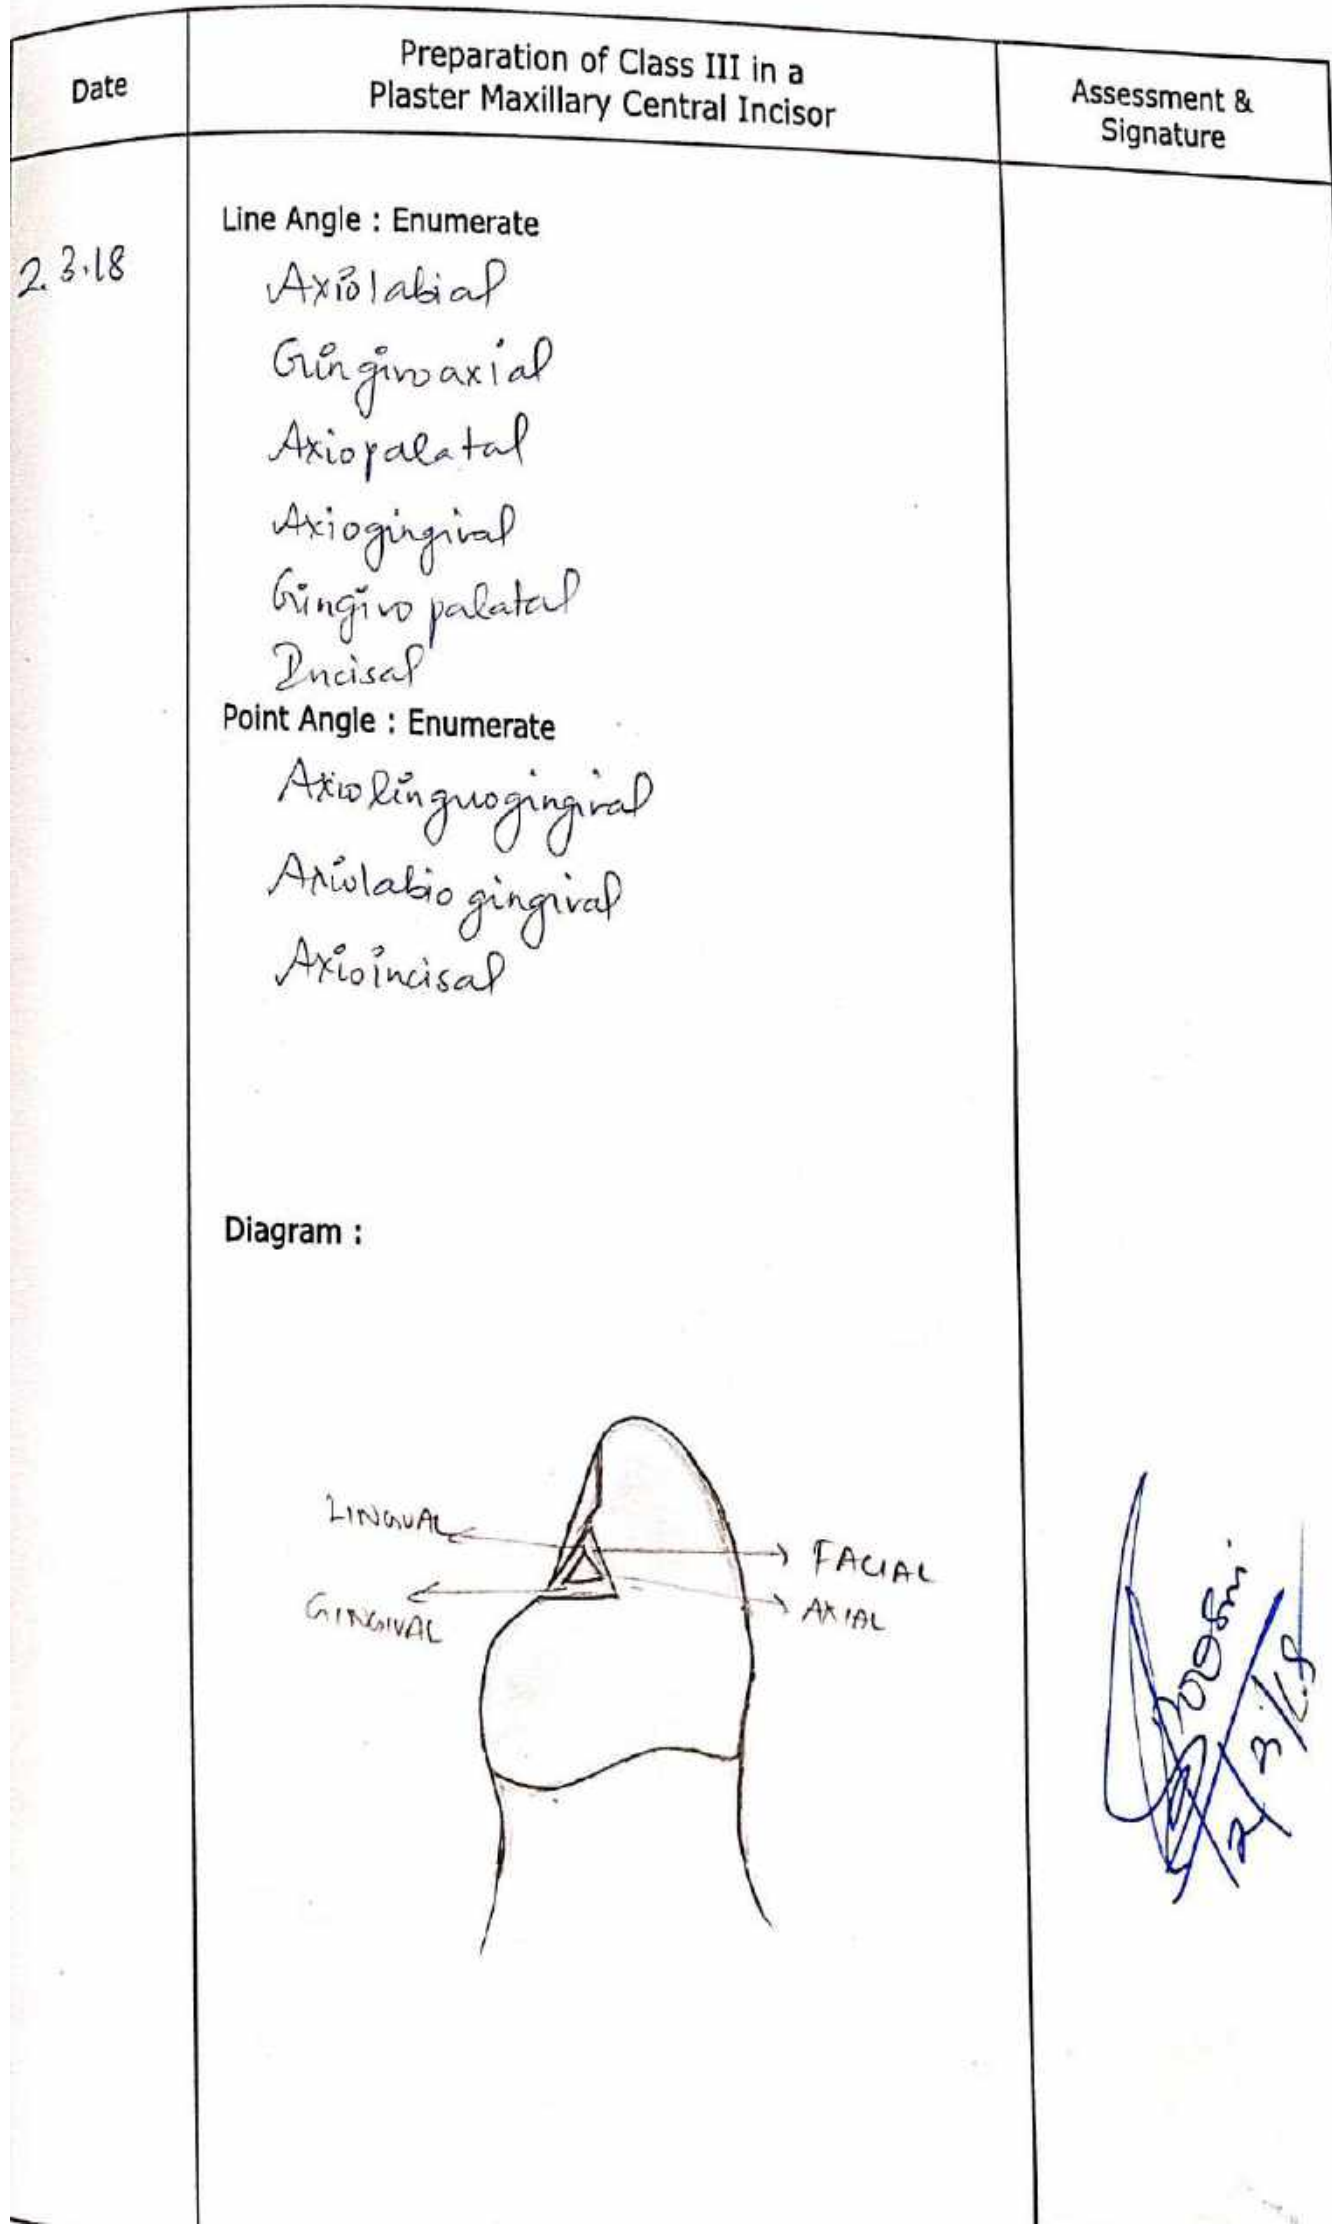 Date
Preparation of Class III in a
Plaster Maxillary Central Incisor
Assessment &
Signature
2.3.18
Line Angle : Enumerate
Axiolabial
Gingivoaxial
Axiopalatal
Axiogingival
Gingivo palatal
Incisal
Point Angle : Enumerate
Axiolinguogingival
Axiolabio gingival
Axioincisal
Diagram :
LINGUAL
FACIAL
GINGIVAL
AXIAL
2/3/18